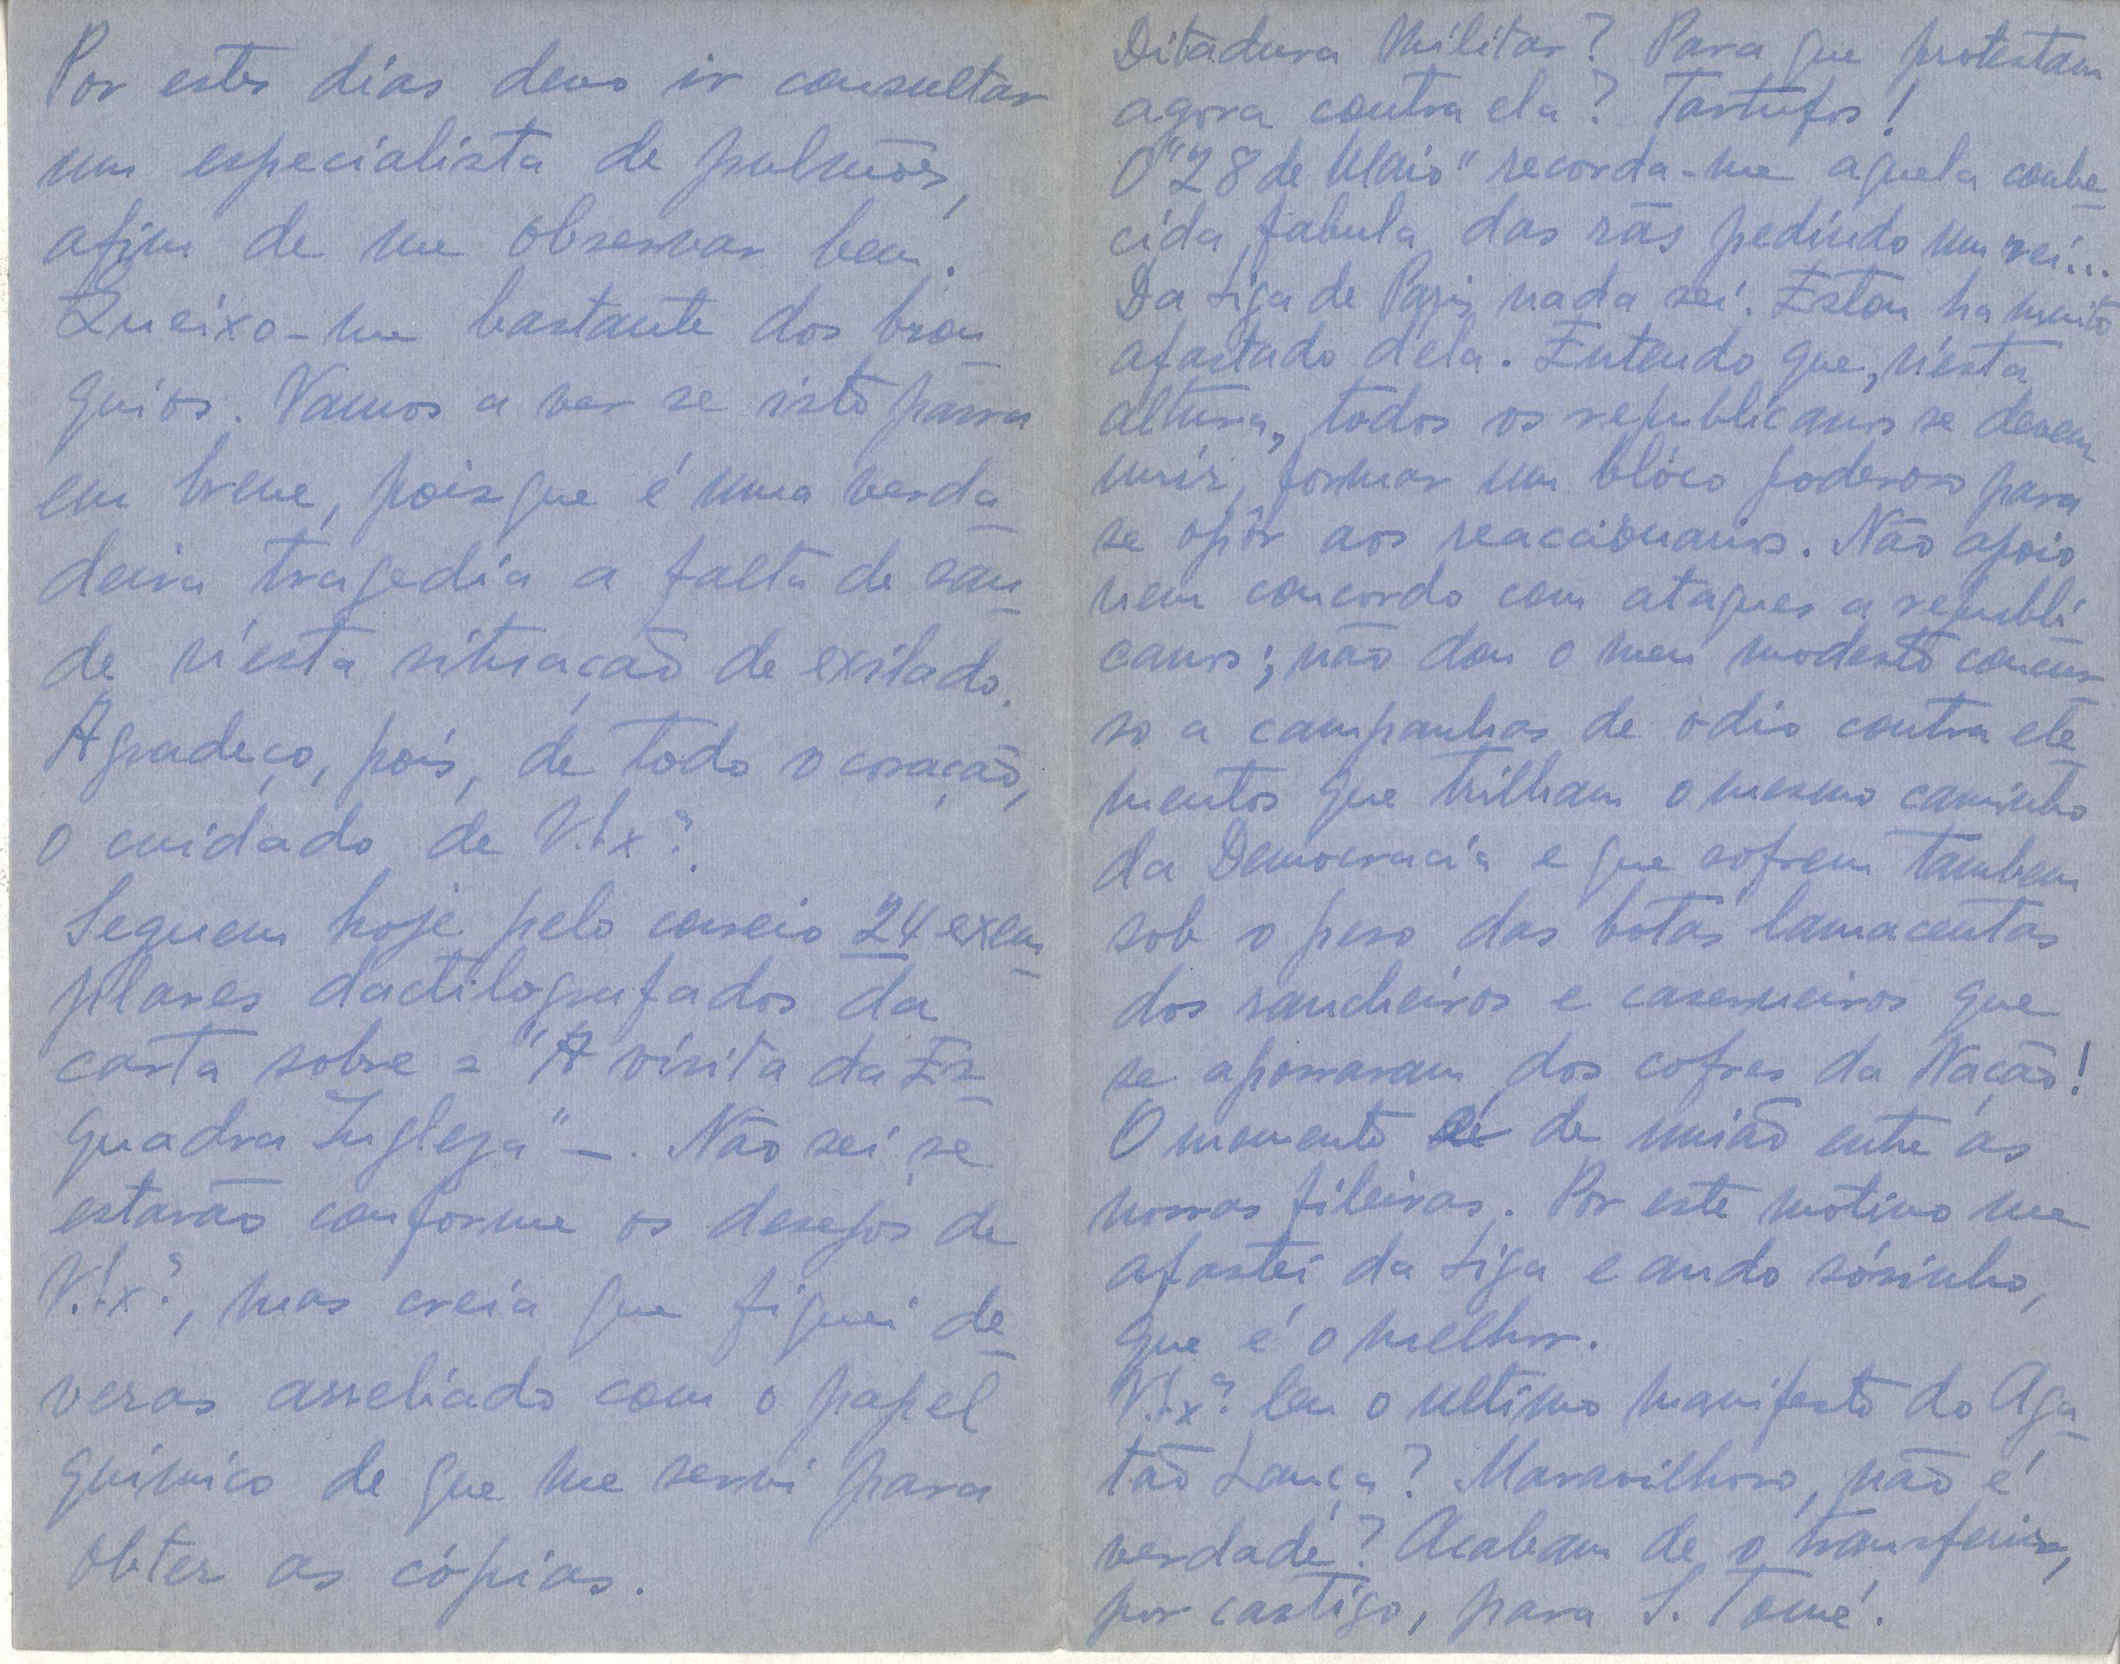 Por estes dias devo ir consultar
um especialista de pulmões,
afim de me observar bem.
Queixo-me bastante dos bron-
quios. Vamos a ver se isto passa
em breve, pois que é uma verda-
deira tragedia a falta de sau-
de n'esta situação de exilado.
Agradeço, pois, de todo o coração,
o cuidado de V. Ex.ª.
Seguem hoje pelo correio 24 exem-
plares dactilografados da
carta sobre = "A visita da Es-
quadra Ingleza" -. Não sei se
estarão conforme os desejos de
V. Ex.ª, mas creia que fiquei de-
veras arreliado com o papel
químico de que me servi para
obter as cópias.
Ditadura Militar? Para que protestam
agora contra ela? Tartufos!
O "28 de Maio" recorda-me aquela conhe-
cida fabula das rãs pedindo um rei...
Da Liga de Paris nada sei. Estou ha muito
afastado dela. Entendo que, n'esta
altura, todos os republicanos se devem
unir, formar um blóco poderoso para
se opôr aos reaccionarios. Não apoio
nem concordo com ataques a republi-
canos; não dou o meu modesto concur-
so a campanhas de odio contra ele-
mentos que trilham o mesmo caminho
da Democracia e que sofrem tambem
sob o peso das botas lamacentas
dos rancheiros e caserneiros que
se apossaram dos cofres da Nação!
O momento é de união entre as
nossas fileiras. Por este motivo me
afastei da Liga e ando sósinho,
que é o melhor.
V. Ex.ª leu o ultimo manifesto do Aga-
tão Lança? Maravilhoso, não é
verdade? Acabam de o transferir,
por castigo, para S. Tomé.